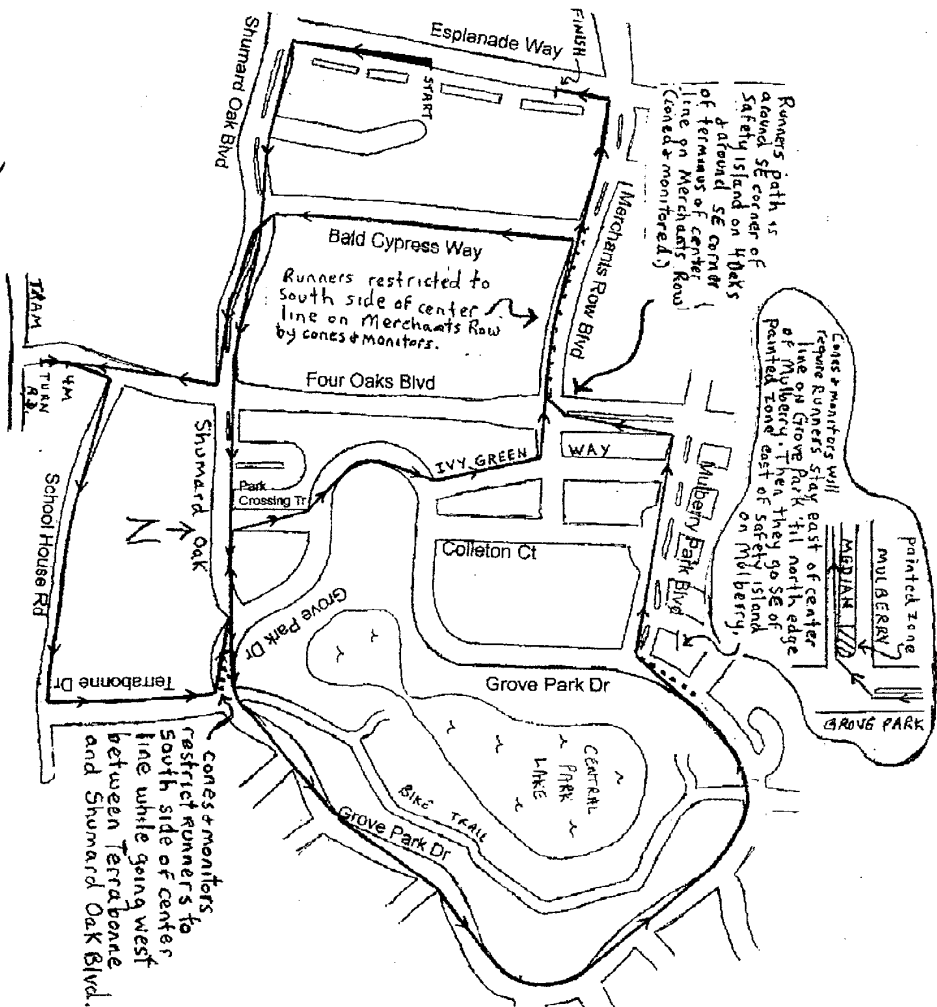 FINISH
Esplanade Way
Shumard Oak Blvd
START
Runners path is
around SE corner of
safety island on 4 Oaks
& around SE corner
of terminus of center
line on Merchants Row
(coned & monitored.)
Merchants Row Blvd
Bald Cypress Way
Runners restricted to
South side of center
line on Merchants Row
by cones & monitors.
Four Oaks Blvd
TRAM
TURN
4M
Rd.
Cones & monitors will
require Runners stay east of center
line on Grove Park 'til north edge
of Mulberry. Then they go SE of
painted zone east of safety island
on Mulberry.
painted zone
MULBERRY
MEDIAN
GROVE PARK
Shumard Oak
Park
Crossing Tr
IVY GREEN
WAY
Mulberry Park Blvd
Colleton Ct
N
School House Rd
Terrabonne Dr
Grove Park Dr
Grove Park Dr
CENTRAL
PARK
LAKE
BIKE TRAIL
Grove Park Dr
cones & monitors
restrict runners to
South side of center
line while going west
between Terrabonne
and Shumard Oak Blvd.